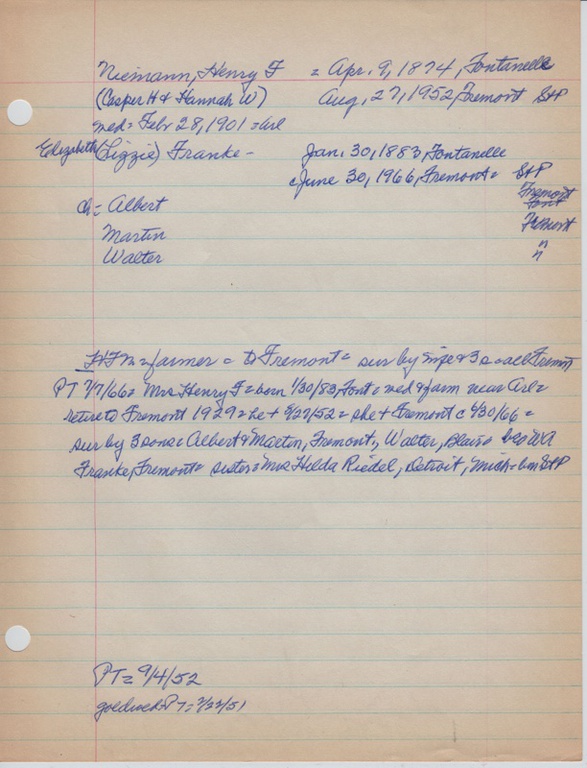 Niemann, Henry F = Apr. 9, 1874, Fontanelle
(Casper H & Hannah W) Aug. 27, 1952, Fremont StP
med = Febr 28, 1901 = Arl
Elizabeth (Lizzie) Franke - Jan. 30, 1883, Fontanelle
c June 30, 1966, Fremont = StP
Fremont
Font
ch = Albert Fremont
Martin "
Walter "
HFN = farmer = to Fremont = sur by wife & 3 s = all Fremnt
PT 7/7/66 = Mrs Henry F = born 1/30/83, Font = med & farm near Arl =
retire to Fremont 1929 = he + 8/27/52 = she + Fremont c 6/30/66 =
sur by 3 sons = Albert & Martin, Fremont, Walter, Blair = bro WA
Franke, Fremont = sister = Mrs Hilda Riedel, Detroit, Mich = bm StP
PT = 9/4/52
goldwed = PT = 2/22/51